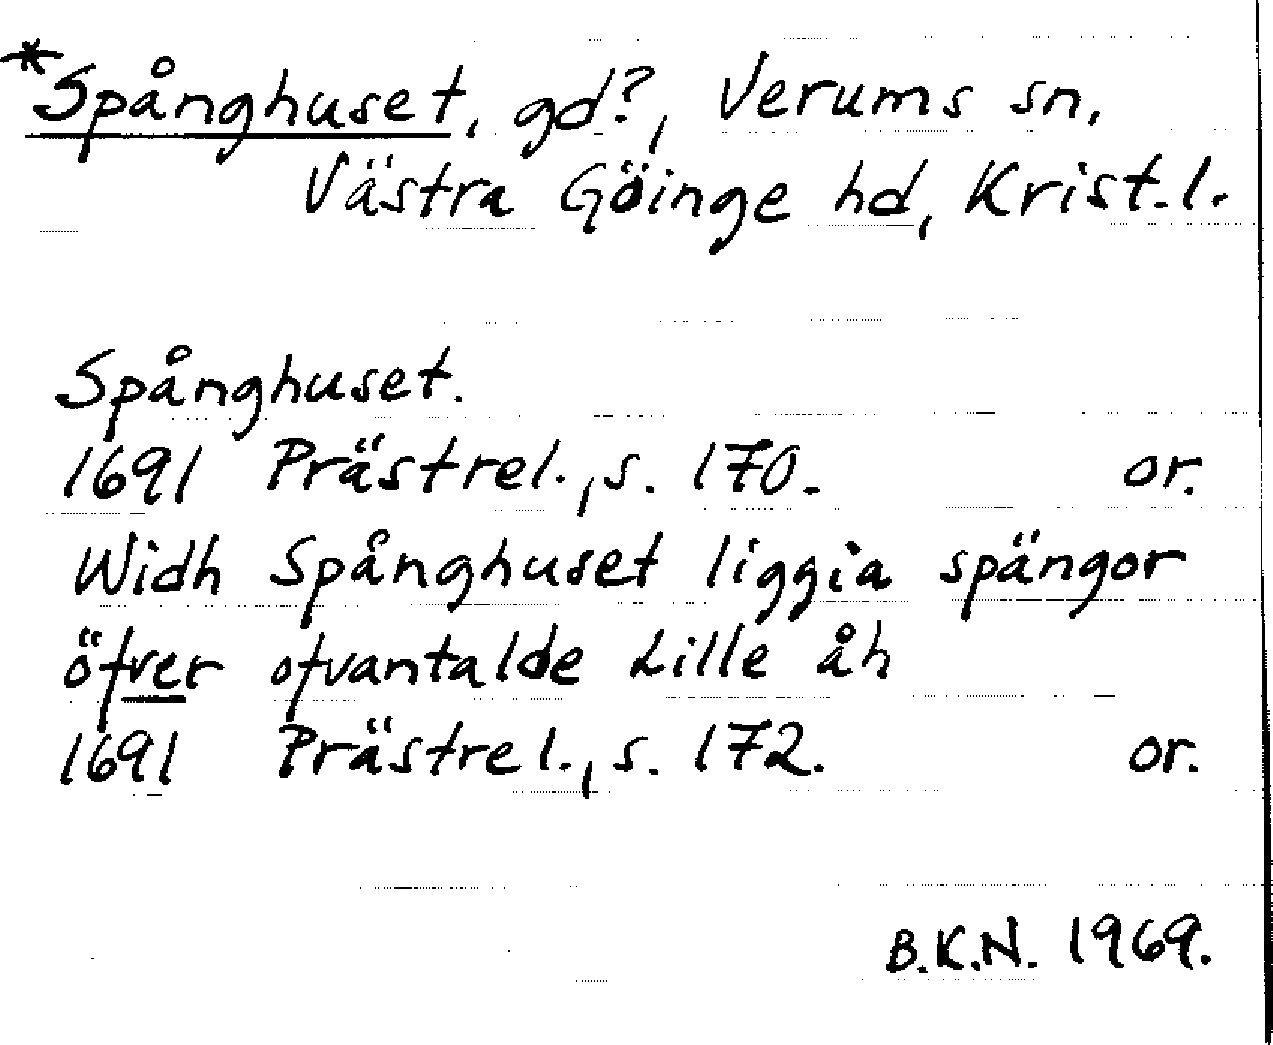 *Spånghuset, gd?, Verums sn,
Västra Göinge hd, Krist. l.
Spånghuset.
1691 Prästrel., s. 170. or.
Widh Spånghuset liggia spängor
öfver ofvantalde Lille åh
1691 Prästrel., s. 172. or.
B.K.N. 1969.